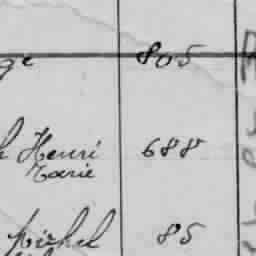 ge 805
h Henri 688
Marie
Michel 85